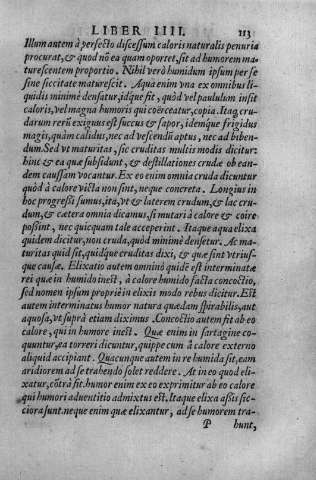 LIBER IIII. 113
Illum autem à perfecto discessum caloris naturalis penuria
procurat, & quod nõ ea quam oportet, sit ad humorem ma-
turescentem proportio. Nihil verò humidum ipsum per se
sine siccitate maturescit. Aqua enim vna ex omnibus li-
quidis minimè densatur, idque fit, quòd vel paulùlum insit
caloris, vel magna humoris qui coërceatur, copia. Itaq; cru-
darum rerũ exiguus est succus & sapor, idenque frigidus
magis, quàm calidus, nec ad vescendũ aptus, nec ad biben-
dum. Sed vt maturitas, sic cruditas multis modis dicitur:
hinc & ea quæ subsidunt, & destillationes crudæ ob ean-
dem caussam vocantur. Ex eo enim omnia cruda dicuntur
quòd à calore victa non sint, neque concreta. Longius in
hoc progressi sumus, ita, vt & laterem crudum, & lac cru-
dum, & cætera omnia dicamus, si mutari à calore & coire
possint, nec quicquam tale acceperint. Itaque aqua elixa
quidem dicitur, non cruda, quòd minimè densetur. Ac ma-
turitas quid sit, quidque cruditas dixi, & quæ sint vtrius-
que causæ. Elixatio autem omninò quidẽ est interminatæ
rei quæ in humido inest, à calore humido facta concoctio,
sed nomen ipsum propriè in elixti modo rebus dicitur. Est
autem interminatus humor natura quædam spirabilis, aut
aquosa, vt suprà etiam diximus. Concoctio autem fit ab eo
calore, qui in humore inest. Quæ enim in sartagine co-
quuntur, ea torreri dicuntur, quippe cum à calore externo
aliquid accipiant. Quacunque autem in re humida sit, eam
aridiorem ad se trahendo solet reddere. At in eo quod eli-
xatur, cõtrà fit. humor enim ex eo exprimitur ab eo calore
qui humori aduentitio admixtus est. Itaque elixa aßis sic-
ciora sunt. neque enim quæ elixantur, ad se humorem tra-
P hunt,